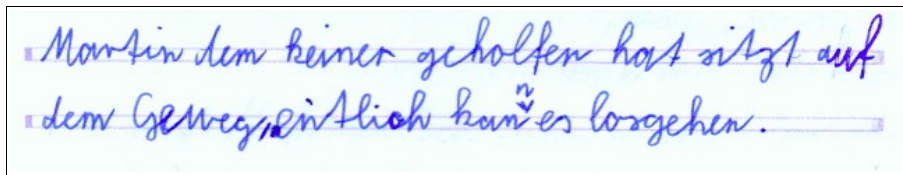 Martin dem keiner geholfen hat sitzt auf
dem Geweg, entlich kann es losgehen.